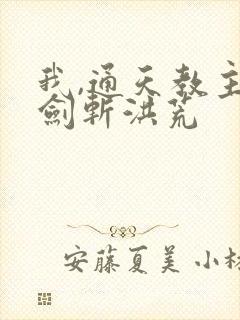 我,通天教主
劍斬洪荒
安藤夏美 小林